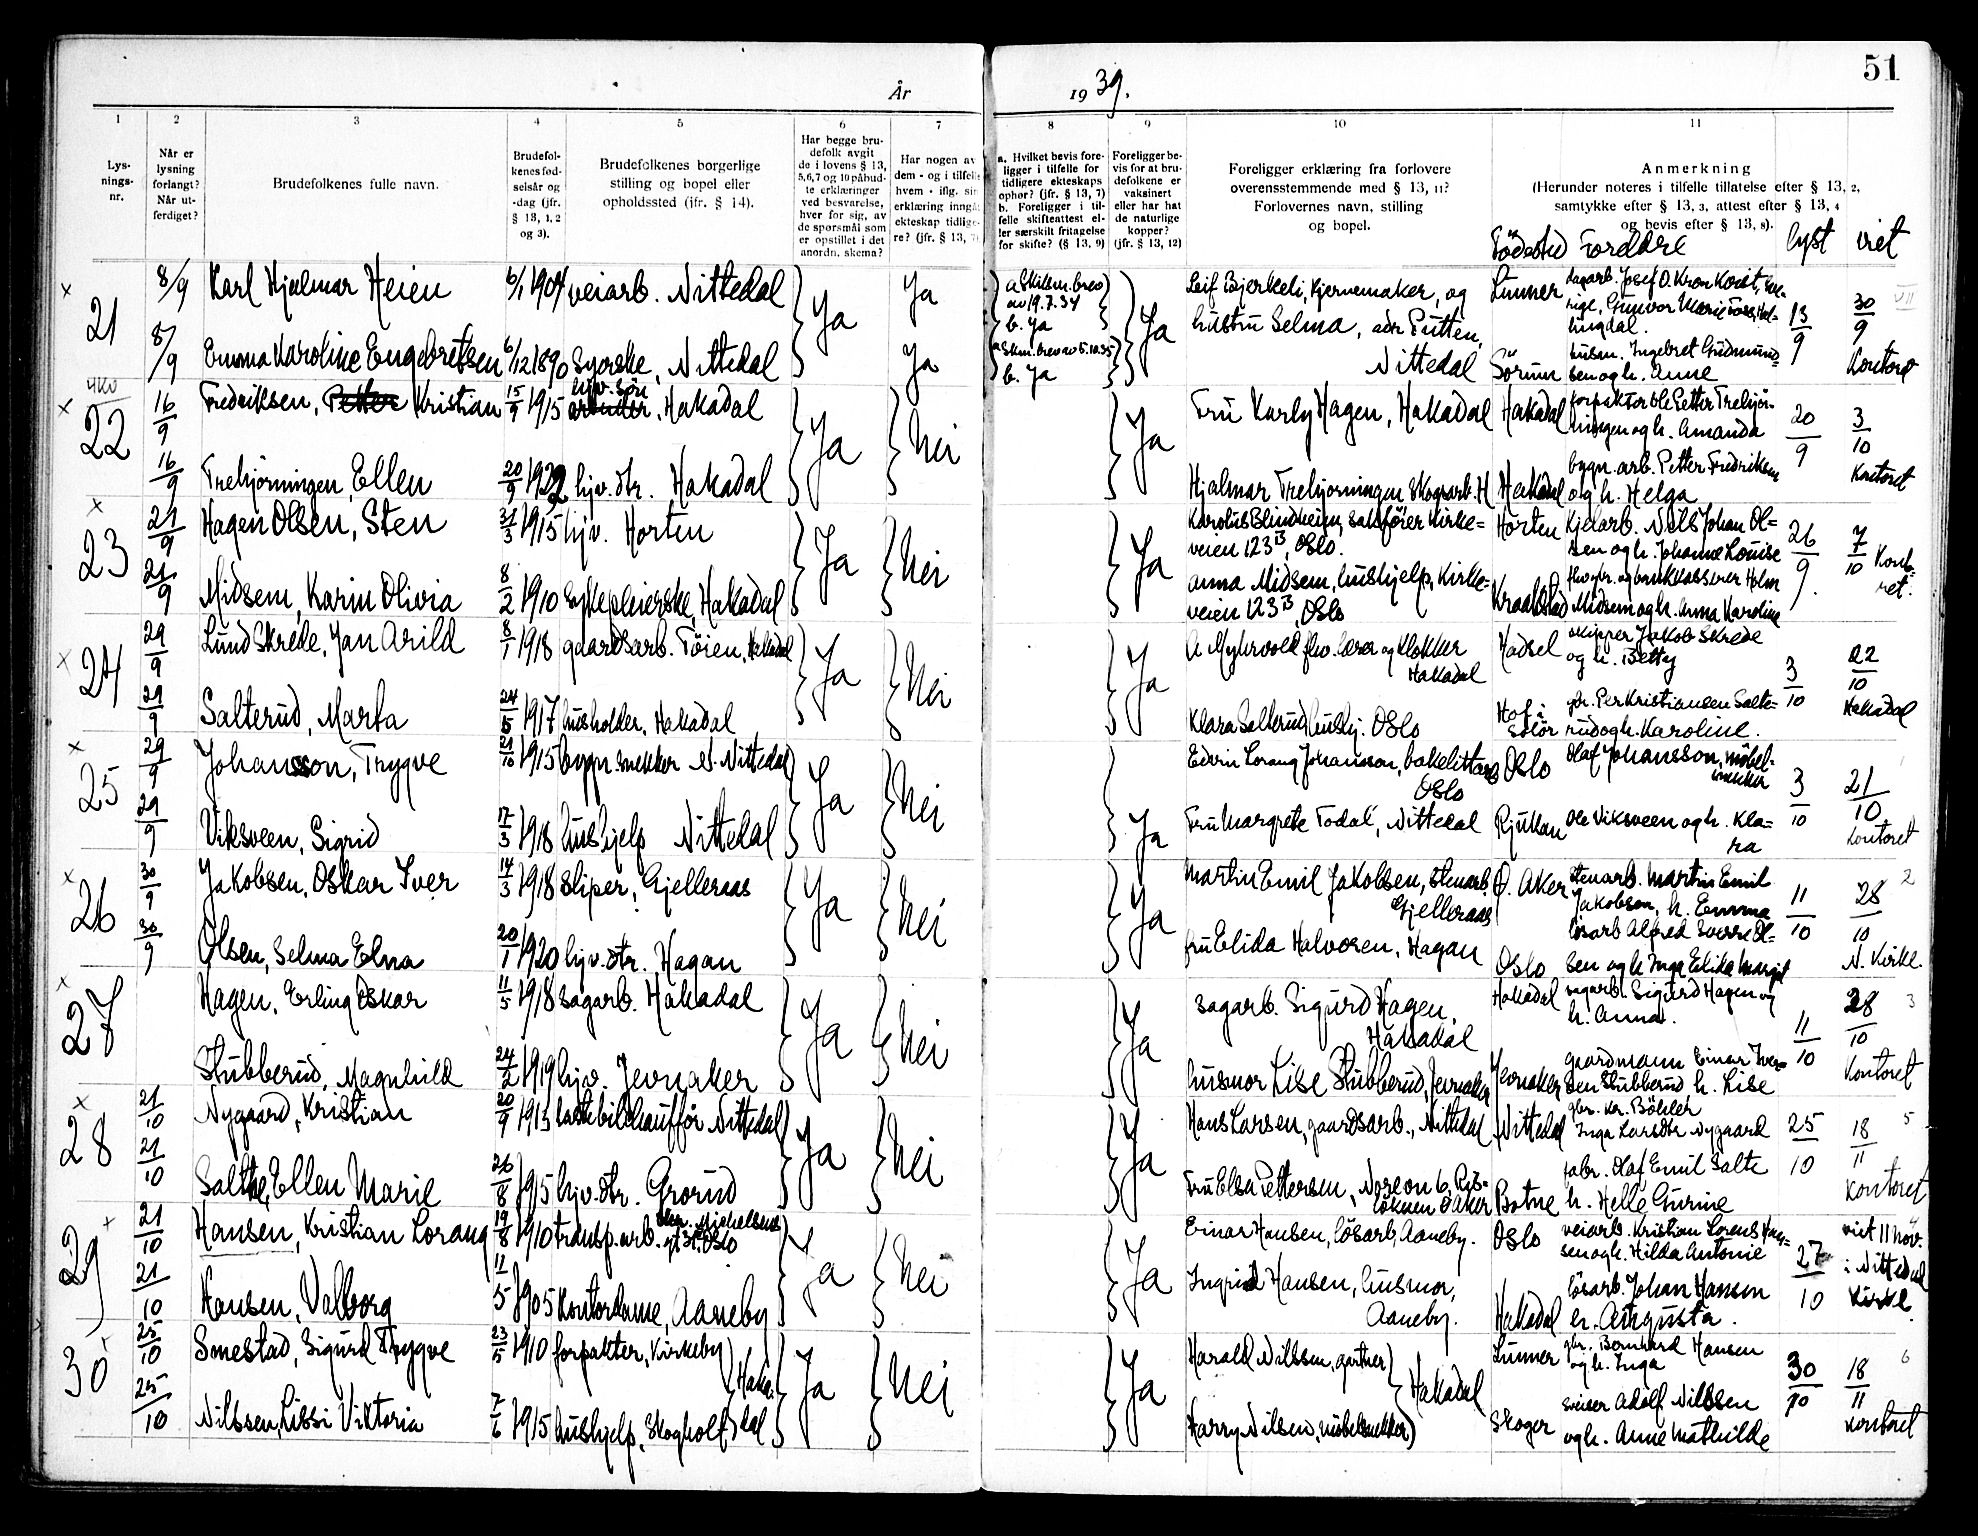 51
År
19 39.
1
2
3
4
5
6
7
8
9
10
11
Lys-
nings-
nr.
Når er
lysning
forlangt?
Når ut-
ferdiget?
Brudefolkenes fulle navn.
Brudefol-
kenes fød-
selsår og
-dag (jfr.
§ 13, 1, 2
og 3).
Brudefolkenes borgerlige
stilling og bopel eller
opholdssted (jfr. § 14).
Har begge bru-
defolk avgit
de i lovens § 13,
5, 6, 7 og 10 påbud-
te erklæringer
ved besvarelse,
hver for sig, av
de spørsmål som
er opstillet i det
anordn. skema?
Har nogen av
dem - og i tilfelle
hvem - iflg. sin
erklæring inngått
ekteskap tidlige-
re? (jfr. § 13, 7)
a. Hvilket bevis fore-
ligger i tilfelle for
tidligere ekteskaps
ophør? (jfr. § 13, 7)
b. Foreligger i til-
felle skifteattest el-
ler særskilt fritagelse
for skifte? (§ 13, 9)
Foreligger be-
vis for at bru-
defolkene er
vaksinert
eller har hat
de naturlige
kopper?
(jfr. § 13, 12)
Foreligger erklæring fra forlovere
overensstemmende med § 13, 11?
Forlovernes navn, stilling
og bopel.
Anmerkning
(Herunder noteres i tilfelle tillatelse efter § 13, 2,
samtykke efter § 13, 3, attest efter § 13, 4
og bevis efter § 13, 8).
Födested Foreldre lyst viet
21
8/9 Karl Hjalmar Heien 6/1 1904 veiarb. Nittedal Ja Ja
a Skilsm. brev
av 19.7.34
b. Ja
Ja
Leif Bjerkeli, kjernemaker, og
hustru Selma, adr Putten,
Nittedal
Lunner
13/9 30/9
8/9 Emma Karoline Engebretsen 6/12 1890 Syerske, Nittedal Ja
Skm. brev av 5.10.35
b. Ja
Sörum husm. Ingebret Gudmund-
sen og h. Anne
Kontoret
22
16/9 Fredriksen, Petter Kristian 15/9 1915 hjv. sön
arbeider, Hakadal Ja Nei Ja
Fru Karly Hagen, Hakadal Hakadal
forpakter Ole Petter Trehjör-
ningen og h. Amanda
20/9 3/10
16/9 Trehjörningen, Ellen 20/9 1922 hjv. dtr. Hakadal
Hjalmar Trehjörningen Skogsarb. H Hakadal
bygn. arb. Petter Fredriksen
og h. Helga
Kontoret
23
21/9 Hagen Olsen, Sten 31/3 1915 hjv. Horten Ja Nei Ja
Karolus Blindheim, sakförer Kirke-
veien 123 B, Oslo.
Horten Kjelarb. Nils Johan Ol-
sen og h. Johanne Louise
26/9 7/10 Konto-
ret.
21/9 Midsem, Karin Olivia 8/2 1910 Sykepleierske, Hakadal
Anna Midsem, hushjelp, Kirke-
veien 123 B, Oslo
Kraakstad
Midsem og h. Anna Karoline
24
29/9 Lund Skrede, Jan Arild 8/1 1918 gaardsarb. Töien, Hakadal Ja Nei Ja
A Myhrvold fhv. lærer og klokker
Hakadal
Hadsel skipper Jakob Skrede
og h. Betty
3/10 22/10
29/9 Salterud, Marta 24/5 1917 husholder, Hakadal
Klara Salterud, hushj. Oslo
Hof i
Solör
gbr. Per Kristiansen Salte-
rud og h. Karoline.
Hakadal
25
29/9 Johansson, Trygve 21/10 1915 bygn snekker N. Nittedal Ja Nei Ja
Edvin Lorang Johansson, bakelittarb
Oslo
Oslo Olaf Johansson, möbel-
snekker
3/10 21/10
29/9 Viksveen, Sigrid 17/3 1918 hushjelp Nittedal
Fru Margrete Todal, Nittedal
Rjukan Ole Viksveen og h. Kla-
ra
Kontoret
26
30/9 Jakobsen, Oskar Iver 14/3 1918 sliper, Gjelleraas Ja Nei Ja
Martin Emil Jakobsen, stenarb
Gjelleraas
Ö. Aker stenarb. Martin Emil
Jakobsen, h. Emma
11/10 28/10 2
30/9 Olsen, Selma Elna 20/1 1920 hjv. dtr. Hagan
fru Elida Halvorsen, Hagan
Oslo lösarb Alfred Sverre Ol-
sen og h Inga Elida Margit
N. Kirke.
27
Hagen, Erling Oskar 11/5 1918 sagarb. Hakadal Ja Nei Ja
sagarb. Sigurd Hagen,
Hakadal
Hakadal sagarb. Sigurd Hagen og
h. Anna.
11/10 28/10 3
Stubberud, Magnhild 24/2 1919 hjv. Jevnaker
husmor Lise Stubberud, Jevnaker
Jevnaker gaardmann Einar Iver-
sen Stubberud h. Lise
Kontoret
28
21/10 Nygaard, Kristian 20/9 1913 lastebilchaufför Nittedal Ja Nei Ja
Hans Larsen, gaardsarb., Nittedal
Nittedal gbr. Kr. Böhler
Inga Larsdtr Nygaard
25/10 18/11 5
21/10 Salthe, Ellen Marie 26/8 1915 hjv. dtr. Grorud
Fru Elsa Pettersen,
Botne fabr. Olaf Emil Salte
h. Helle Gurine
Kontoret
29
21/10 Hansen, Kristian Lorang 19/8 1910 transp. arb. Chr. Michelsens
gt 31, Oslo Ja Nei Ja
Einar Hansen, lösarb, Aaneby.
Oslo veiarb. Kristian Lorens Han-
sen og h. Hilda Antonie
27/10 viet 11 nov.
i Nittedal
Kirke
21/10 Hansen, Valborg 11/5 1905 Kontordame, Aaneby
Ingrid Hansen, husmor,
Aaneby.
Hakadal lösarb. Johan Hansen
h. Augusta.
30
25/10 Smestad, Sigurd Trygve 23/5 1910 forpakter, Kirkeby
Haka-
dal Ja Nei Ja
Harald Nilssen, gartner
Hakadal
Lunner gbr. Bernhard Hansen
og h. Inga
30/10 18/11 6
25/10 Nilssen, Lissi Viktoria 7/6 1915 hushjelp, Skogholt
Harry Nilsen, möbelsnekker
Skoger sveiser Adolf Nilssen
og h. Anne Mathilde
Kontoret